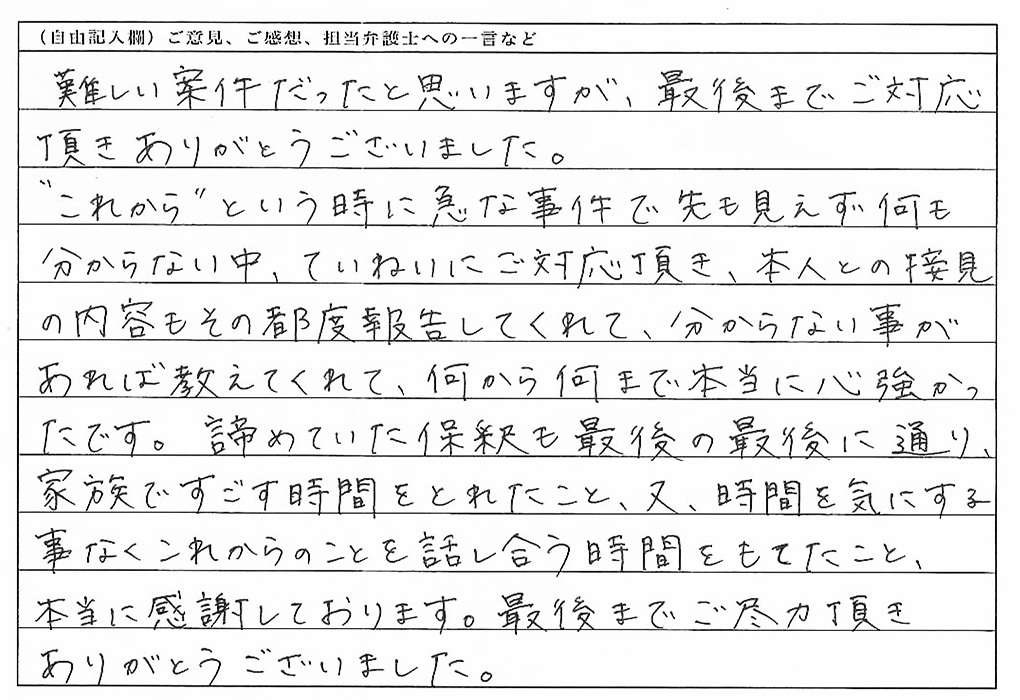 （自由記入欄）ご意見、ご感想、担当弁護士への一言など
難しい案件だったと思いますが、最後までご対応
頂きありがとうございました。
"これから"という時に急な事件で先も見えず何も
分からない中、ていねいにご対応頂き、本人との接見
の内容もその都度報告してくれて、分からない事が
あれば教えてくれて、何から何まで本当に心強かっ
たです。諦めていた保釈も最後の最後に通り、
家族ですごす時間をとれたこと、又、時間を気にする
事なくこれからのことを話し合う時間をもてたこと、
本当に感謝しております。最後までご尽力頂き
ありがとうございました。